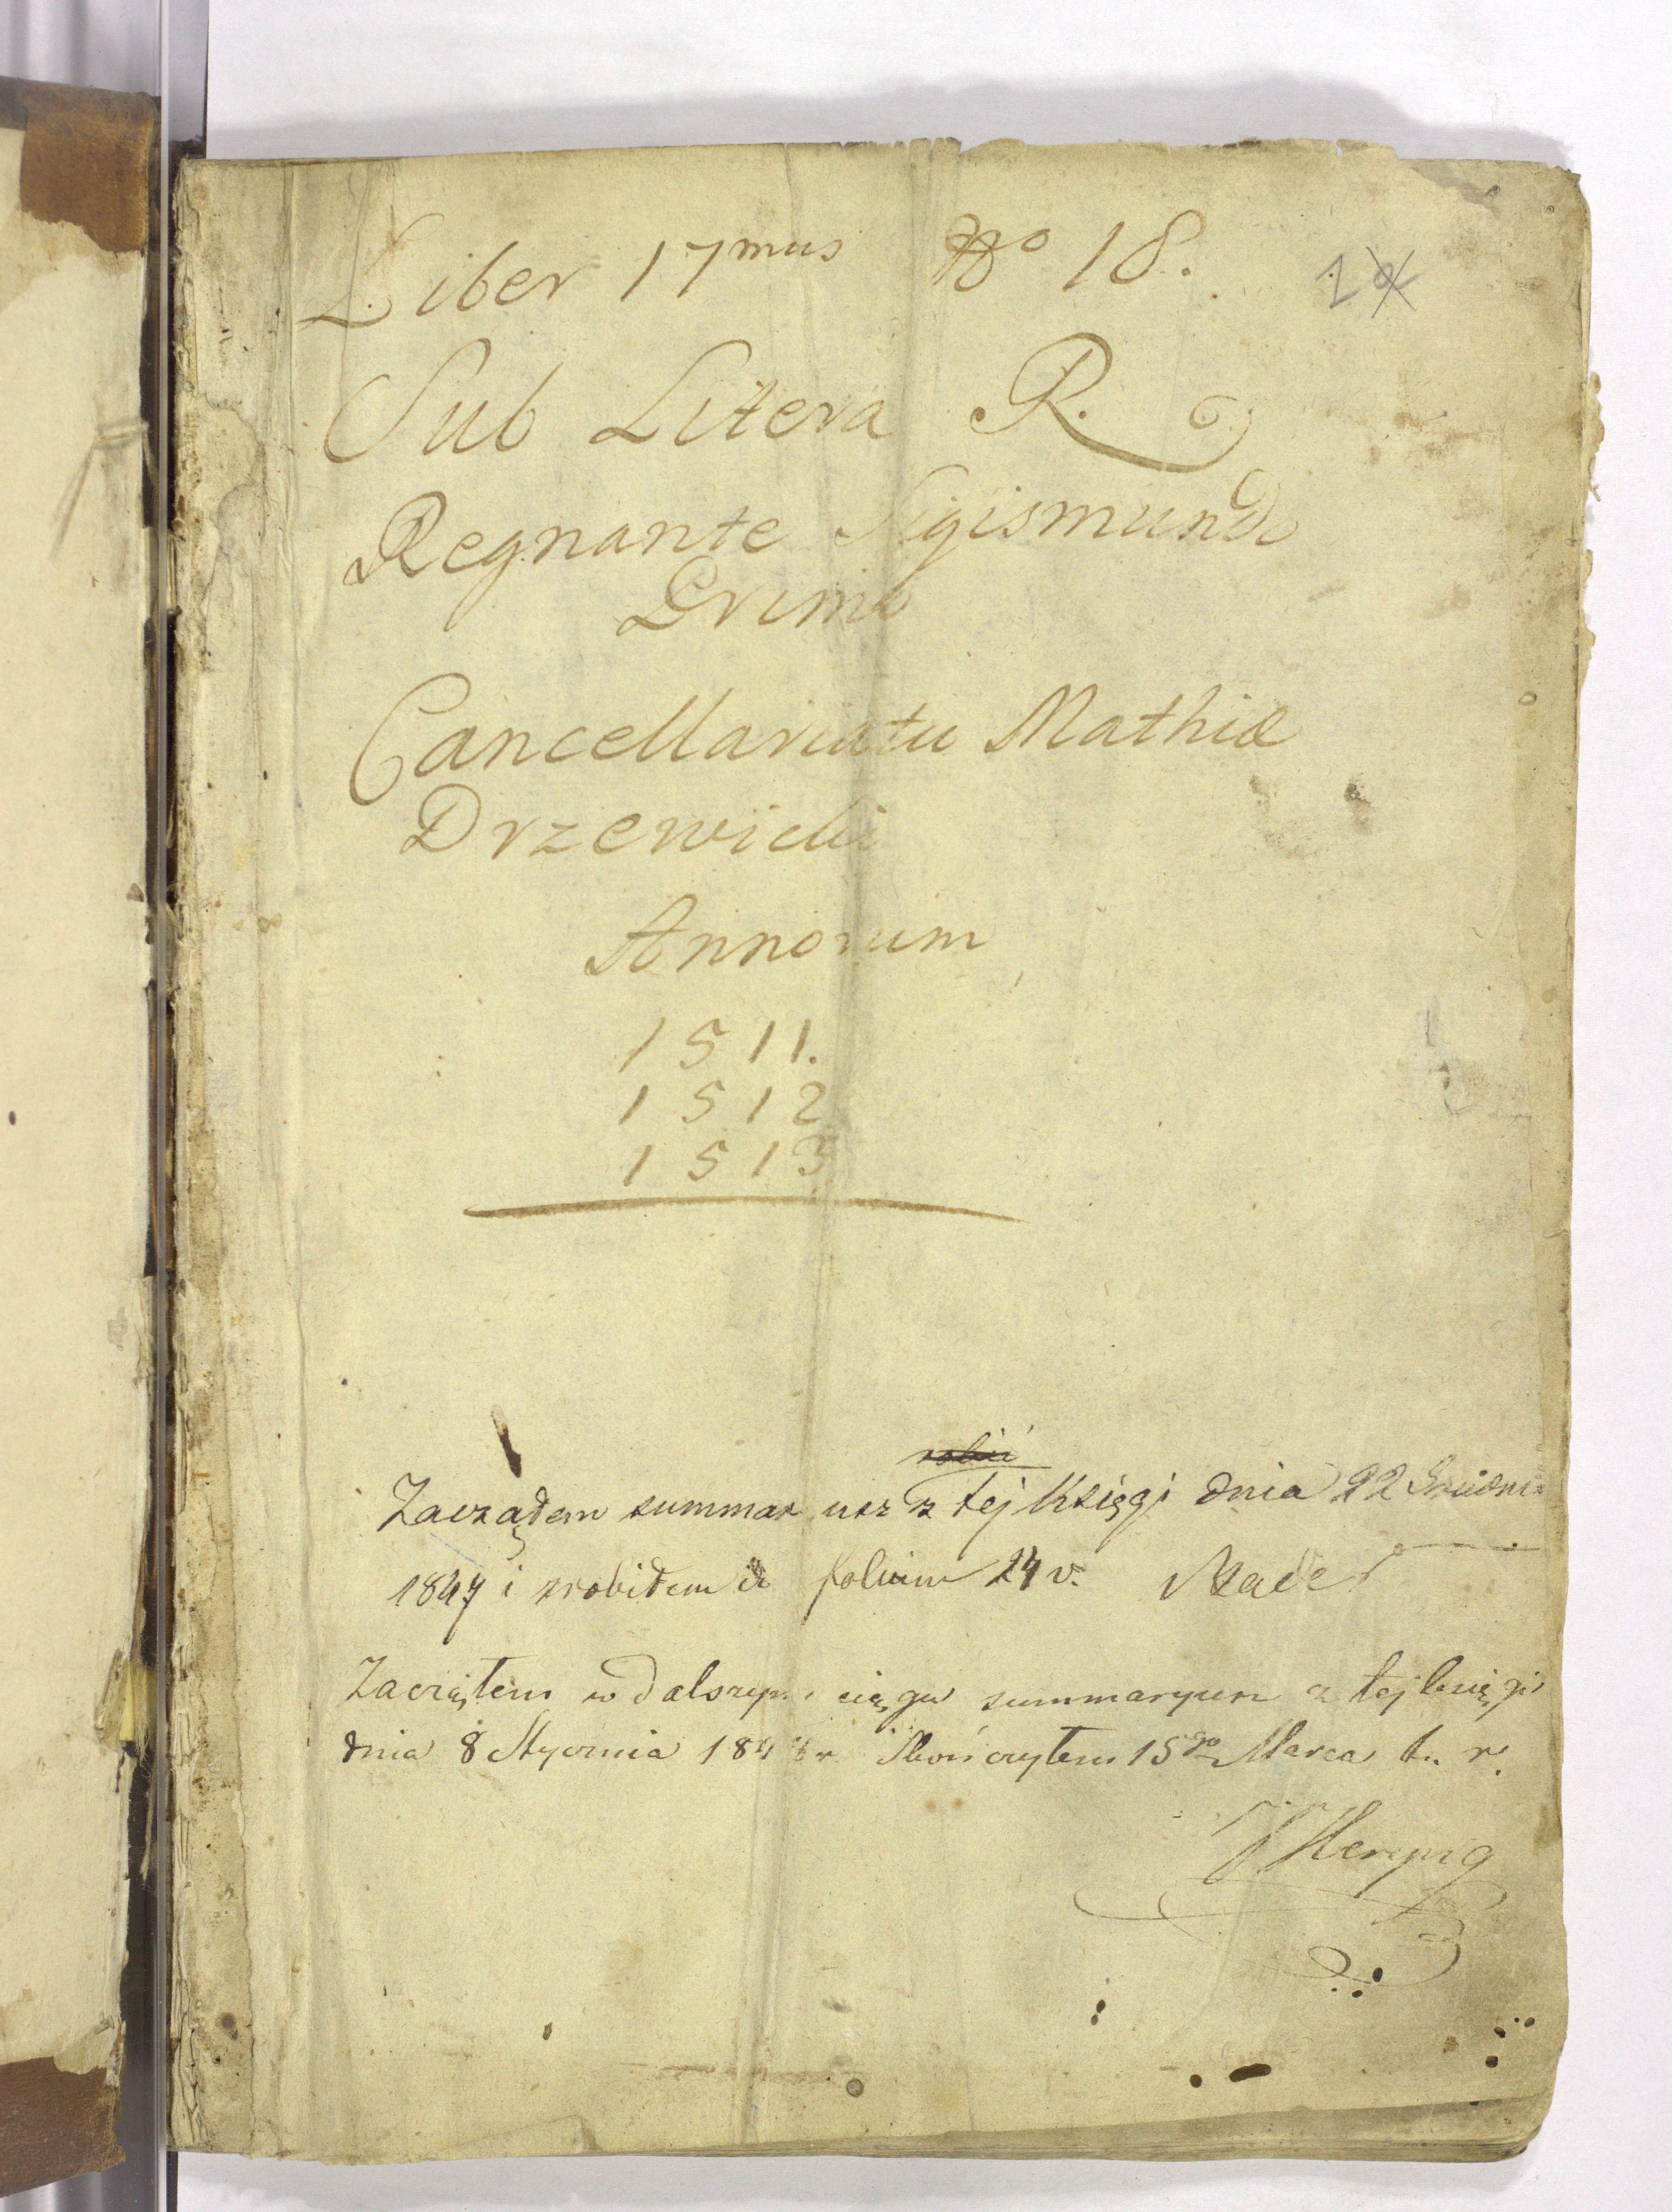 Liber 17mus No 18.
Sub Litera R.
Regnante Sigismundo
Primo
Cancellariatu Mathiæ
Drzewicki
Annorum
1511.
1512
1513
robić
Zacząłem summar z tej Księgi dnia 22 Grudnia
1847 i zrobiłem folium 24 v. Mader
Zacząłem w dalszym ciągu summaryusz z tej księgi
dnia 8 Stycznia 1848 r. Skończyłem 15go Marca t. r.